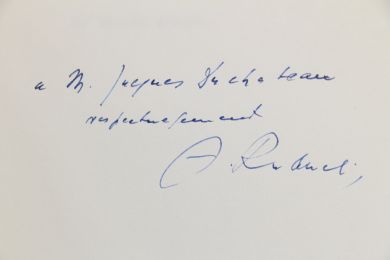 a M. Jacques Duchateau
respectueusement